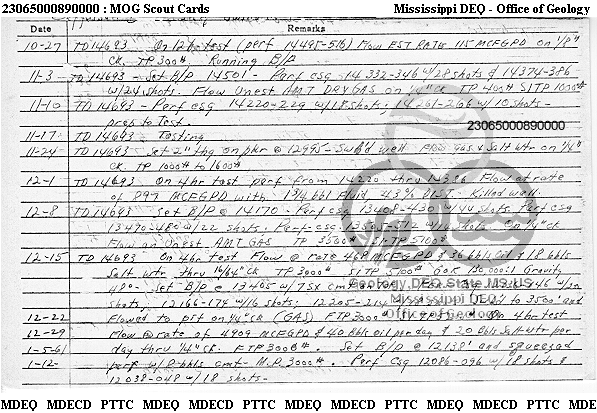 23065000890000 : MOG Scout Cards Mississippi DEQ - Office of Geology
Date Remarks
10-27 TD 14693 On 12 hr test (perf 14495-516) Flow EST RATES 115 MCFGPD on 1/8"
CK. TP 300#. Running B/P
11-3 TD 14693 - Set B/P 14501' - Perf csg 14332-346 w/28 shots & 14374-386
w/24 shots. Flow Unest AMT DRY GAS on 1/4" CK TP 400# SITP 1000#
11-10 TD 14693 - Perf csg 14220-229 w/18 shots; 14261-266 w/10 shots -
prep to Test.
23065000890000
11-17 TD 14693 Testing
11-24 TD 14693 Set 2" tbg on pkr @ 12995 - Swb'd well Flow gas & Salt wtr on 1/4"
CK. TP 1000# to 1600#
12-1 TD 14693 On 4 hr test perf from 14220 thru 14386 Flow at rate
of 897 MCFGPD with Fluid 43% DIST - Killed well.
12-8 TD 14693 Set B/P @ 14170 - Perf csg 13408-430 w/44 shots Perf csg
13470-480 w/22 shots. Perf csg 13505-512 shots On 1/4" CK
Flow an Unest. AMT GAS TP 3500# SITP 5100#
12-15 TD 14693 On 4 hr test Flow @ rate MCFGPD & 36 bbls & 18 bbls
Salt wtr thru 16/64" CK TP 3000# SITP 5100# GOR 130,000:1 Gravity
48° - Set B/P @ 13405 w/75x cmt
Geology DEQ State MS US
shots, 12166-174 w/16 shots; 12205-214 to 3500' and
Mississippi DEQ
12-22 Flowed to pit on 1/4" CK (GAS) FTP 3000# On 4 hr test
Office of Geology
12-29 Flow @ rate of 4909 MCFGPD & 40 bbls oil per day & 20 bbls Salt wtr per
1-5-61 day thru 1/4" CK. FTP 3000#. Set B/P @ 12138' and squeezed
1-12- perf w/8-bbls cmt - M.P. 3000#. Perf Csg 12086-096 w/18 shots &
12038-048 w/18 shots.
MDEQ MDECD PTTC MDEQ MDECD PTTC MDEQ MDECD PTTC MDEQ MDECD PTTC MDEQ MDECD